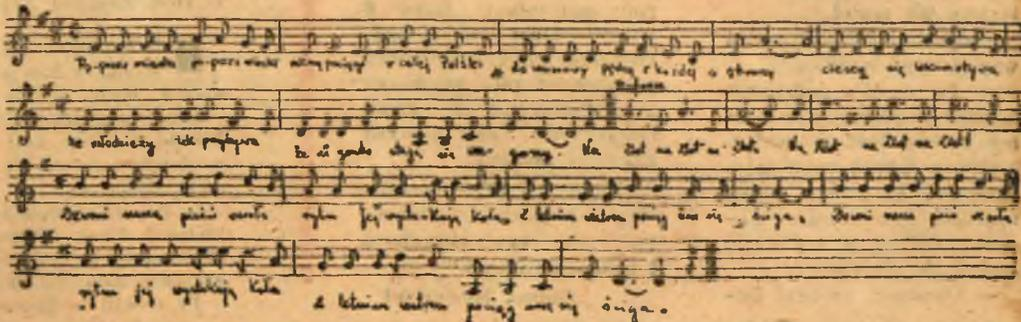 Po przez miasta po przez wioski mkną pociągi z całej Polski do warszawy pędzą z każdej strony cieszą się lokomotywa
że młodzieży tak przybywa że aż gną się wagony. Na Zlot na Zlot na Zlot Na Zlot na Zlot na Zlot
Dzwoni nasza pieśń wesoła rytm jej wystukują koła, z letnim wiatrem pociąg nasz się ściga. Dzwoni nasza pieśń wesoła
rytm jej wystukują koła z letnim wiatrem pociąg nasz się ściga.